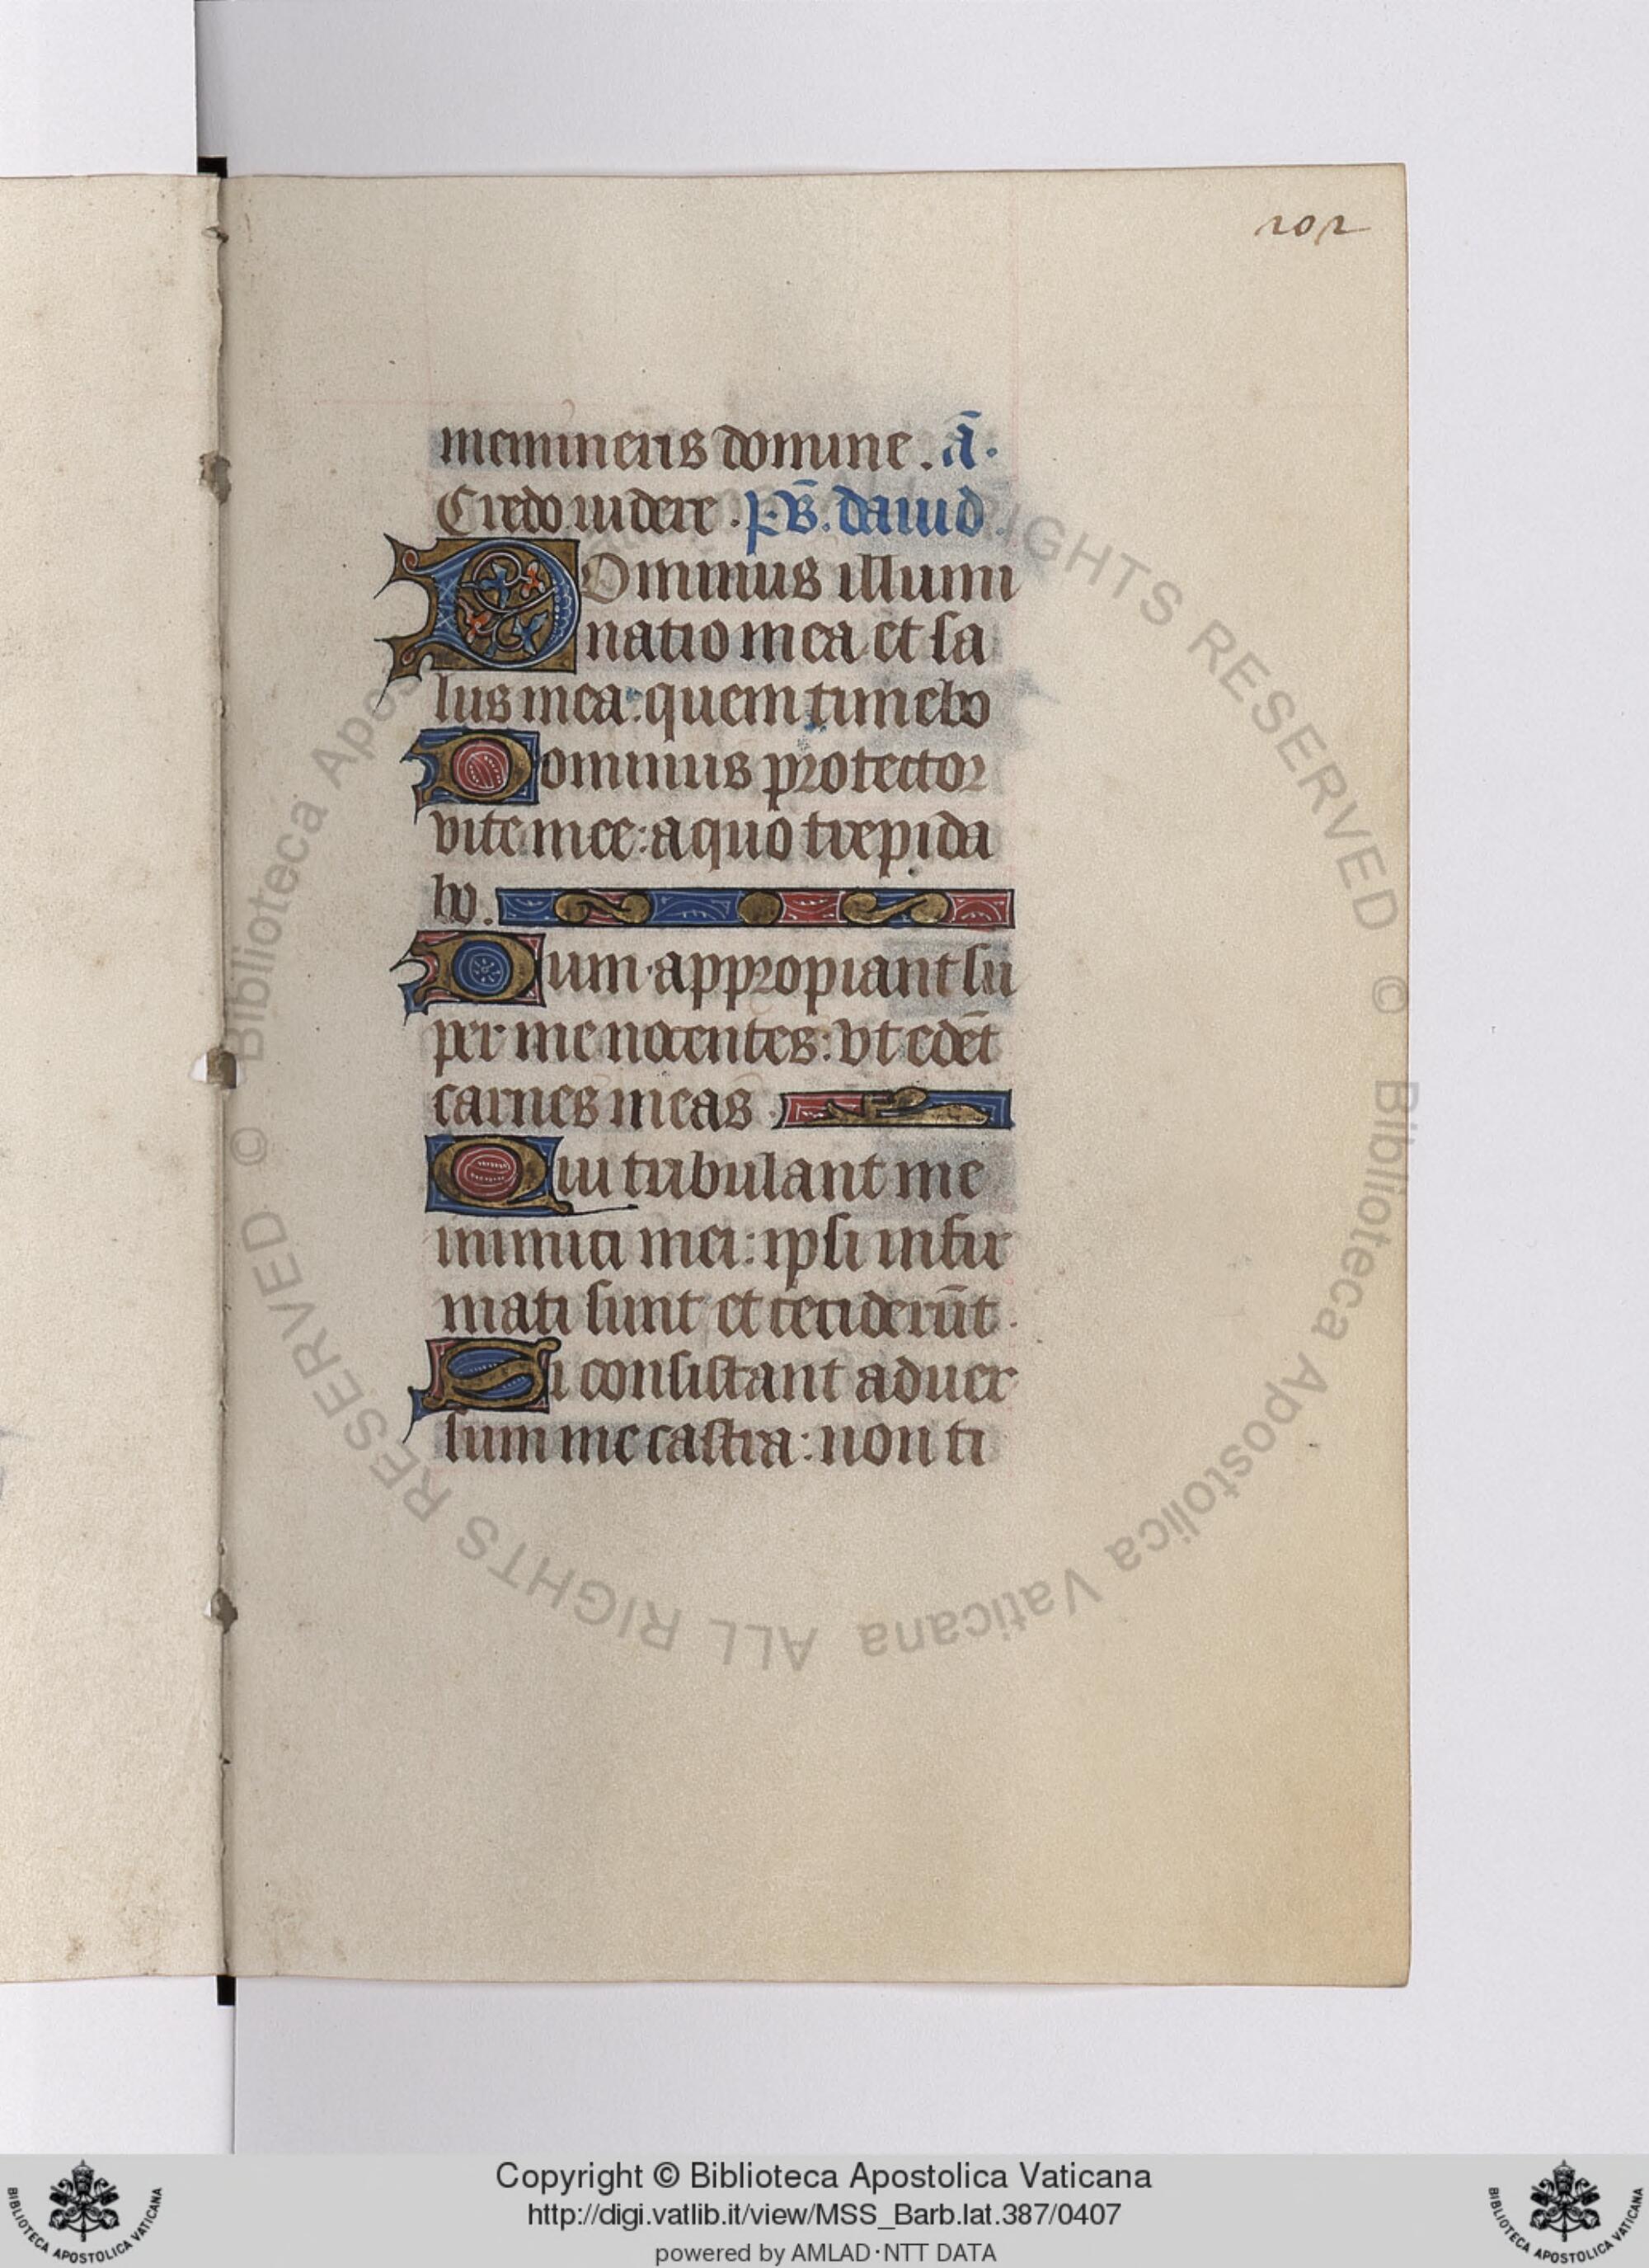 202
memineris domine. ā.
Credo uidere. ps̄. dauid.
DOminus illumi
natio mea et sa
lus mea: quem timebo
Dominus protector
vite mee: a quo trepida
bo.
Dum appropiant su
per me nocentes: vt edēt
carnes meas.
Qui tribulant me
inimici mei: ipsi infir
mati sunt et ceciderūt.
Si consistant aduer
sum me castra: non ti
© Biblioteca Apostolica Vaticana ALL RIGHTS RESERVED © Biblioteca Apostolica Vaticana ALL RIGHTS RESERVED
Copyright © Biblioteca Apostolica Vaticana
http://digi.vatlib.it/view/MSS_Barb.lat.387/0407
powered by AMLAD·NTT DATA
BIBLIOTECA APOSTOLICA VATICANA
BIBLIOTECA APOSTOLICA VATICANA